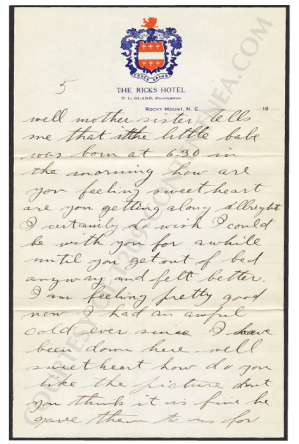 5
THE RICKS HOTEL
ROCKY MOUNT, N. C. 19
well mother sister tells
me that the little babe
was born at 6.30 in
the morning how are
you feeling sweetheart
are you getting along allright
I certainly do wish I could
be with you for awhile
until you get out of bed
anyway and felt better.
I am feeling pretty good
now I had an awful
cold ever since I have
been down here. well
sweetheart how do you
like the picture dont
you think it is fine he
gave them to us for